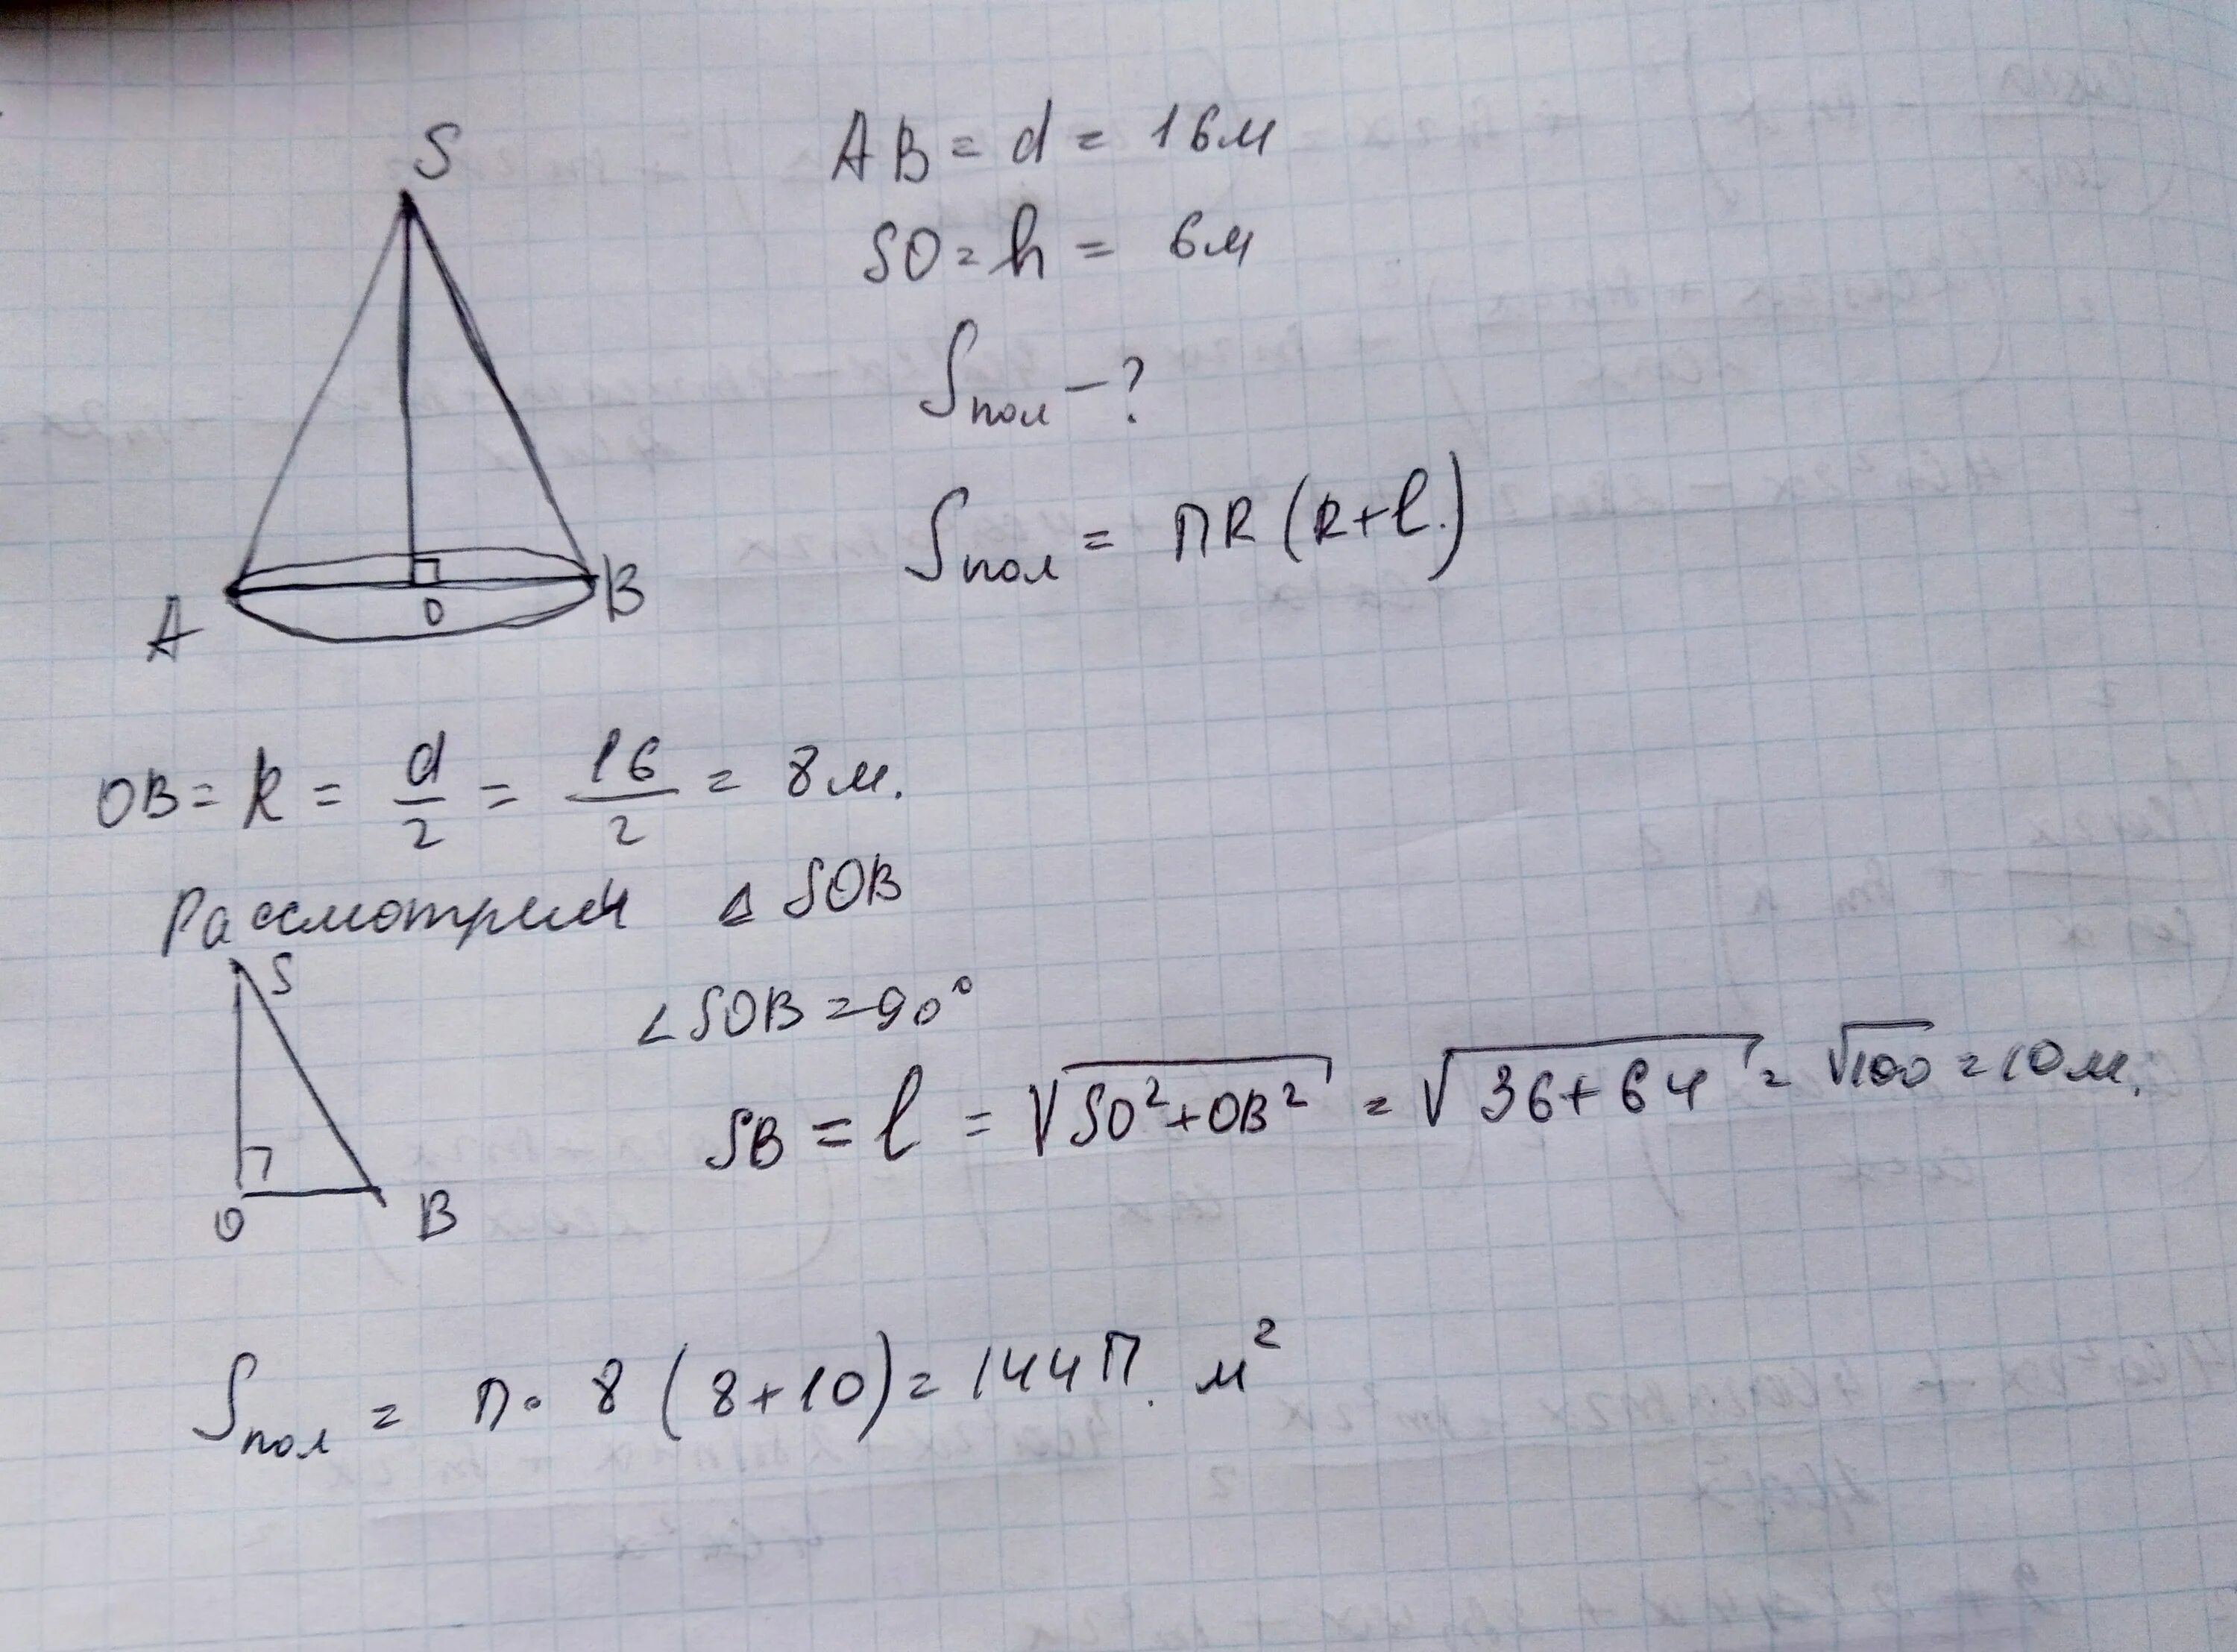 S
AB = d = 16м
SO = h = 6м
Sпол - ?
Sпол = ПR (R+l.)
A O B
OB = R = d/2 = 16/2 = 8м.
Рассмотрим Δ SOB
S
∠SOB = 90°
SB = l = √SO²+OB² = √36+64 = √100 = 10м.
O B
Sпол = П. 8 (8+10) = 144П. м²